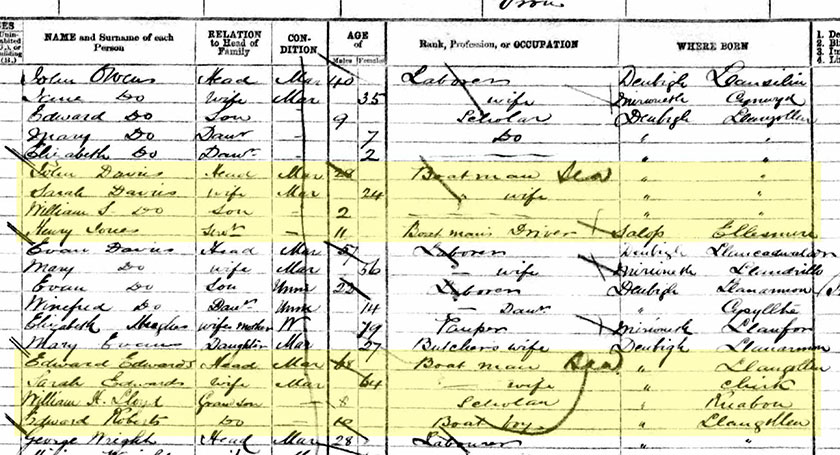 NAME and Surname of each Person RELATION to Head of Family CON- DITION AGE of Males Females Rank, Profession, or OCCUPATION WHERE BORN
John Owens Head Mar 40 Laborer Denbigh Llansilin
Jane Do Wife Mar 35 wife Merioneth
Edward Do Son 9 Scholar Denbigh Llangollen
Mary Do Dawr 7 Do " "
Elizabeth Do Dawr 2 — " "
John Davies Head Mar 28 Boatman Sea " "
Sarah Davies Wife Mar 24 wife " "
William S. Do Son — 2 " "
Henry Jones Servt — 11 Boatman's Driver Salop Ellesmere
Evan Davies Head Mar 57 Laborer Denbigh
Mary Do Wife Mar 56 — wife Merioneth Llandrillo
Evan Do Son Unm 22 Laborer Denbigh Llanarmon
Winifred Do Dawr Unm 14 — Dawr "
Elizabeth Hughes wifes mother W 79 Pauper Merioneth Llanfor
Mary Evans Daughter Mar 27 Butchers wife Denbigh Llanarmon
Edward Edwards Head Mar 68 Boatman Sea " Llangollen
Sarah Edwards Wife Mar 64 — wife " Chirk
William H. Lloyd Grandson — Scholar " Ruabon
Edward Roberts Do — Boat boy " Llangollen
George Wright Head Mar 28 Labourer " "